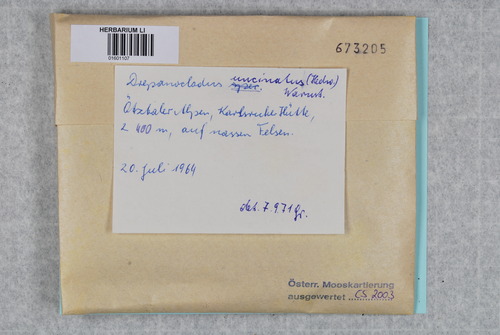 HERBARIUM LI
01601107
673205
Drepanocladus uncinatus (Hedw.)
Warnst.
Ötztaler Alpen, Karlsruher Hütte,
2 400 m, auf nassen Felsen.
20. Juli 1964
det. 7.9.71 Gr.
Österr. Mooskartierung
ausgewertet CS 2003